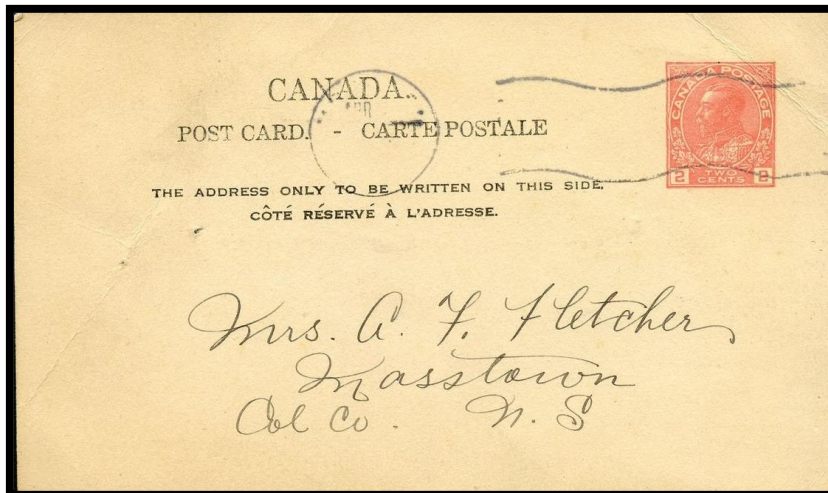 CANADA.
POST CARD. - CARTE POSTALE
THE ADDRESS ONLY TO BE WRITTEN ON THIS SIDE.
CÔTÉ RÉSERVÉ À L'ADRESSE.
CANADA POSTAGE
2 TWO CENTS 2
Mrs. A. F. Fletcher
Masstown
Col Co. N. S